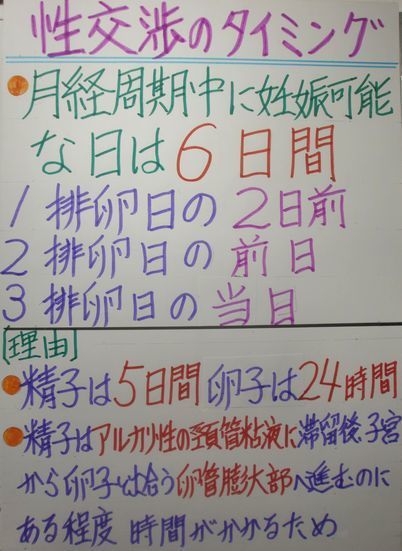 性交渉のタイミング
月経周期中に妊娠可能
な日は6日間
1 排卵日の2日前
2 排卵日の前日
3 排卵日の当日
[理由]
精子は5日間 卵子は24時間
精子はアルカリ性の頚管粘液に滞留後、子宮
から卵子と出会う卵管膨大部へ進むのに
ある程度 時間がかかるため